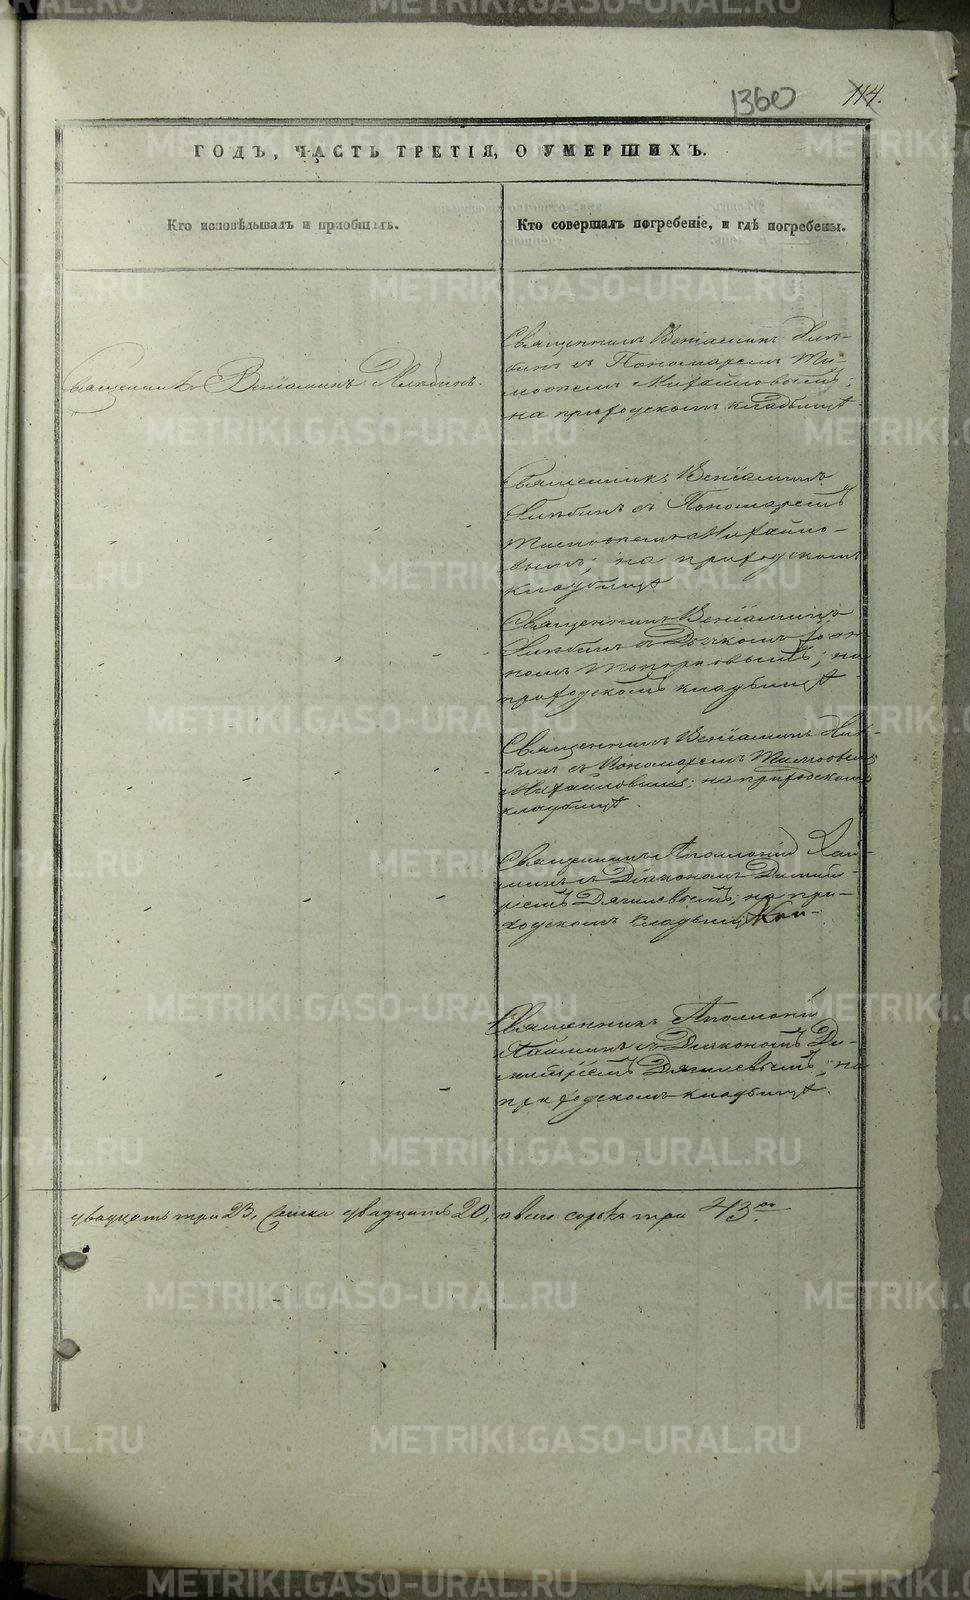 1360
114.
ГОДЪ, ЧАСТЬ ТРЕТІЯ, О УМЕРШИХЪ.
Кто исповѣдывалъ и пріобщалъ.
Кто совершалъ погребеніе, и гдѣ погребены.
Священникъ Веніаминъ
Священникъ Веніаминъ
съ Пономаремъ Ти-
моѳеемъ Михайловымъ;
на приходскомъ кладбищѣ.
Священникъ Веніаминъ
съ Пономаремъ
Тимоѳеемъ Михайло-
вымъ; на приходскомъ
кладбищѣ
Священникъ Веніаминъ
съ Дьячкомъ Іоан-
номъ Топорковымъ; на
приходскомъ кладбищѣ.
Священникъ Веніаминъ
съ Пономаремъ Тимоѳеемъ
Михайловымъ; на приходскомъ
кладбищѣ.
Священникъ Аполлоній
съ Діакономъ Димит-
ріемъ Дягилевымъ; на при-
ходскомъ кладбищѣ
Священникъ Аполлоній
съ Діакономъ Ди-
митріемъ Дягилевымъ; на
приходскомъ кладбищѣ.
двадцать три 23, двадцать 20, а всего сорокъ три 43
METRIKI.GASO-URAL.RU